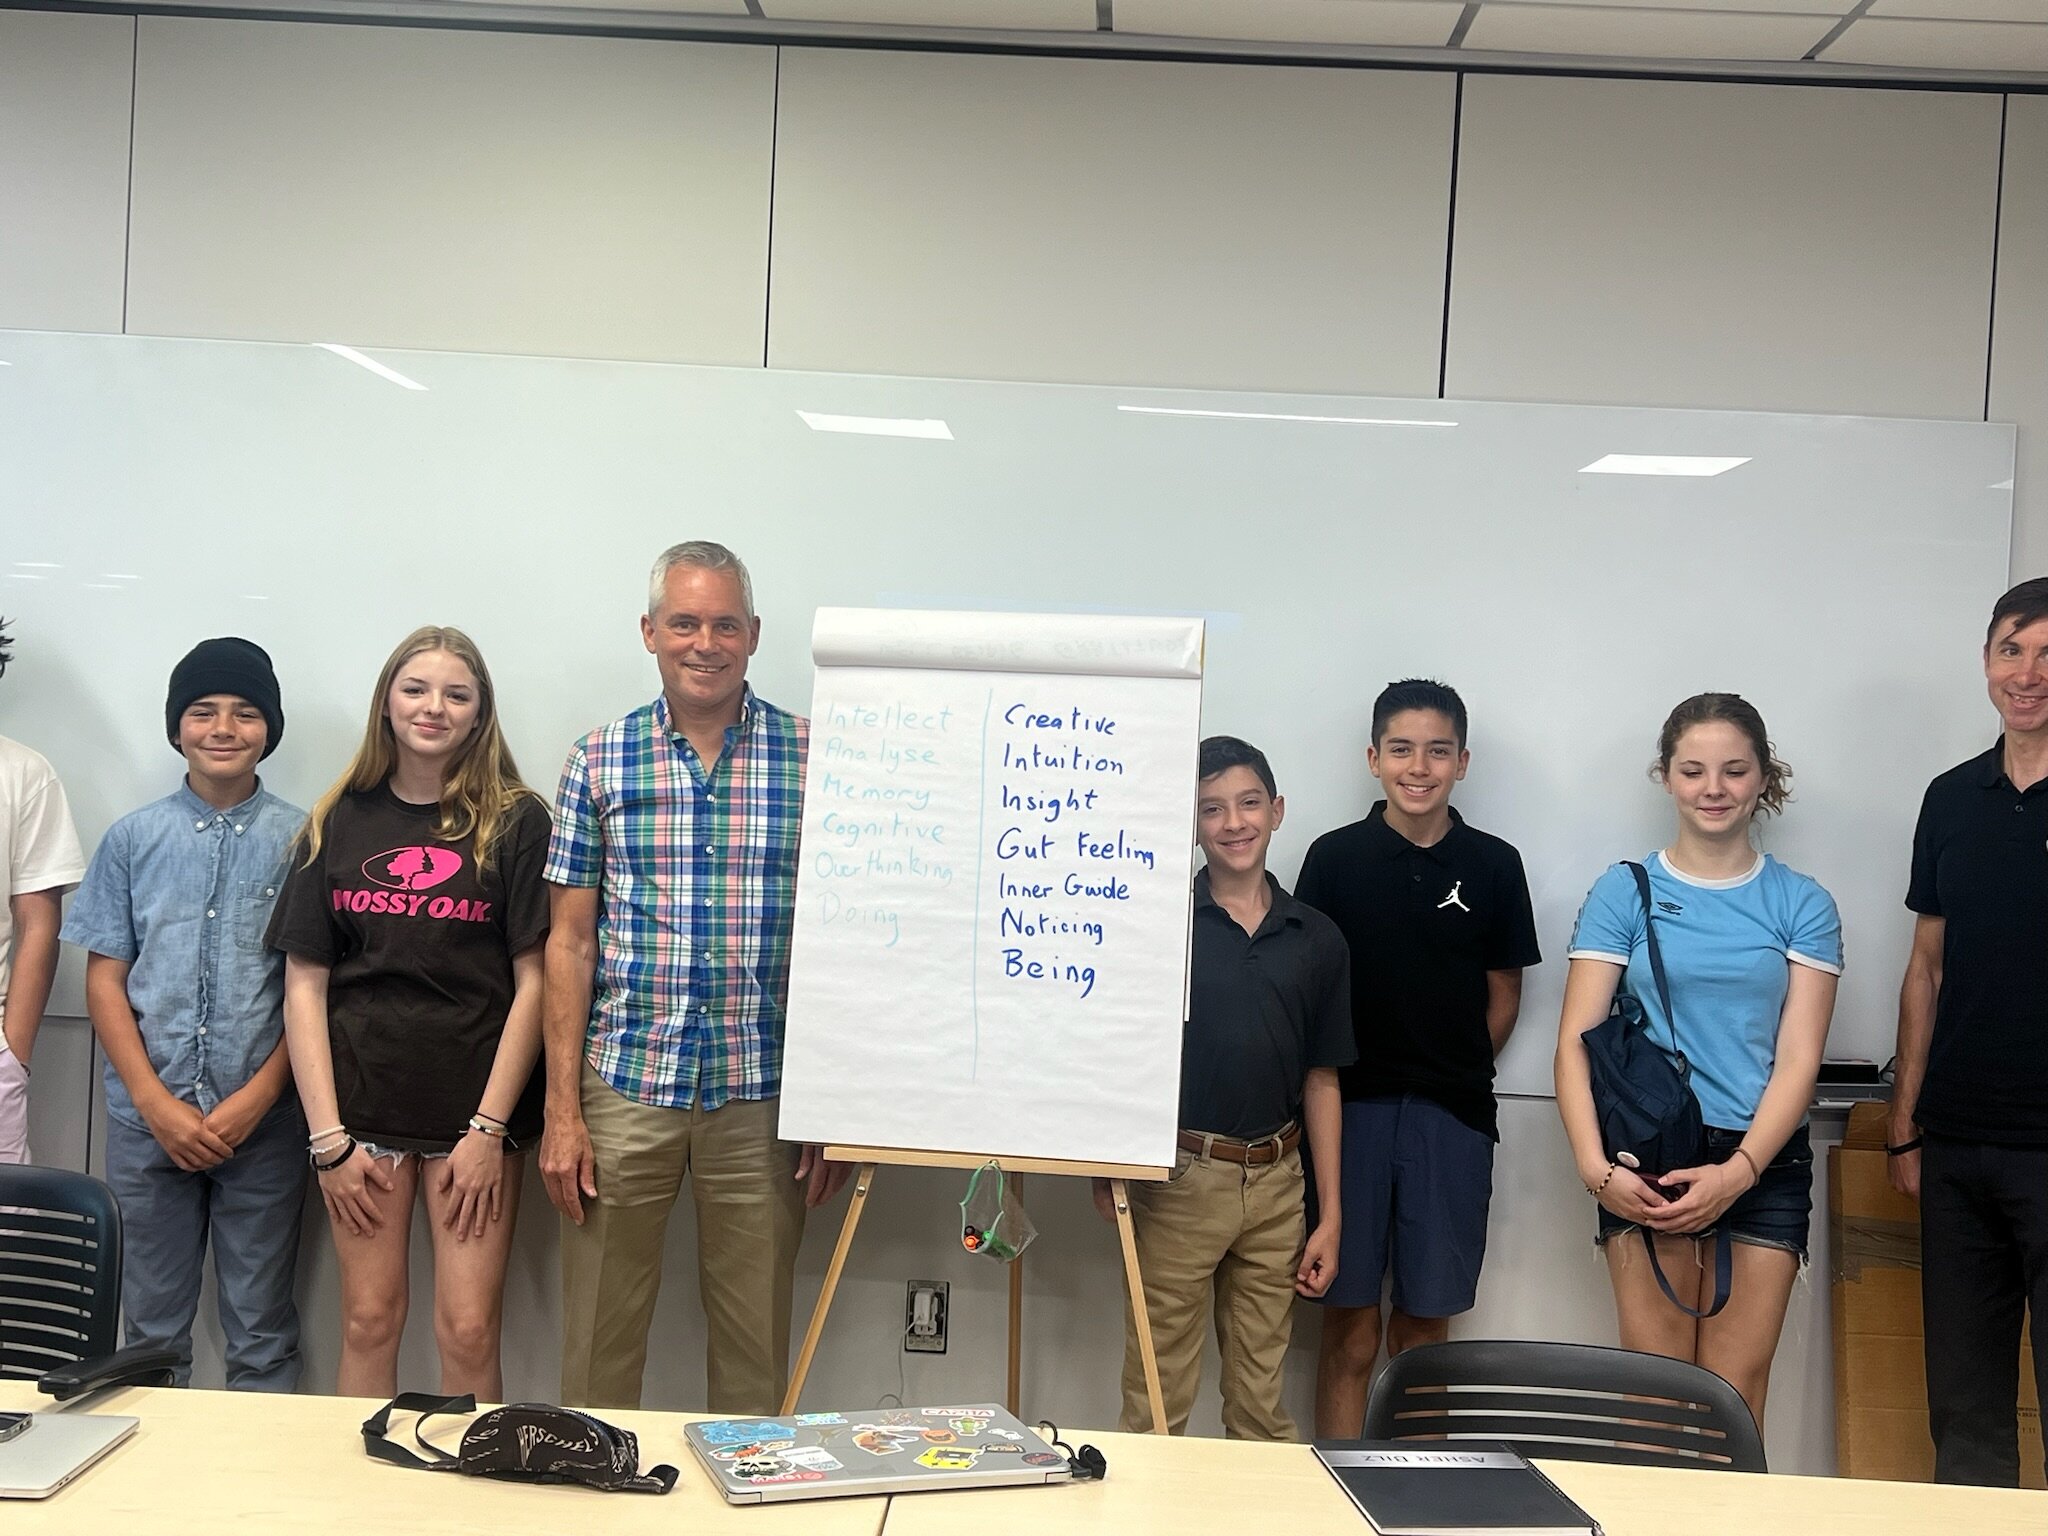 Intellect
Analyse
Memory
Cognitive
Overthinking
Doing
Creative
Intuition
Insight
Gut Feeling
Inner Guide
Noticing
Being
MOSSY OAK.
umbro
HERSCHEL
ASHER BILZ